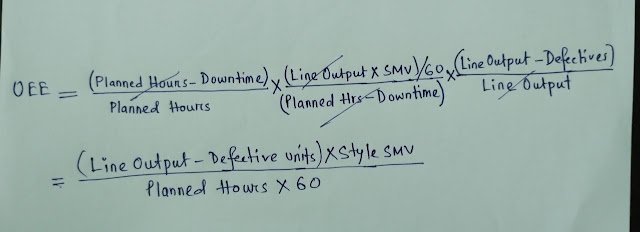 OEE = (Planned Hours - Downtime) / Planned Hours × (Line Output × SMV)/60 / (Planned Hrs - Downtime) × (Line Output - Defectives) / Line Output
= (Line Output - Defective units) × Style SMV / Planned Hours × 60